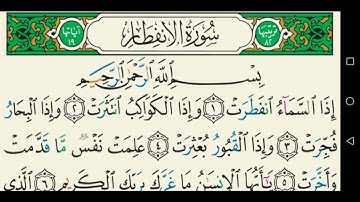 ترتيبها ٨٢ سُورَةُ الِانْفِطَارِ آياتها ١٩
بِسْمِ اللَّهِ الرَّحْمَٰنِ الرَّحِيمِ
إِذَا السَّمَاءُ انْفَطَرَتْ ١ وَإِذَا الْكَوَاكِبُ انْتَثَرَتْ ٢ وَإِذَا الْبِحَارُ
فُجِّرَتْ ٣ وَإِذَا الْقُبُورُ بُعْثِرَتْ ٤ عَلِمَتْ نَفْسٌ مَّا قَدَّمَتْ
وَأَخَّرَتْ ٥ يَٰأَيُّهَا الْإِنْسَٰنُ مَا غَرَّكَ بِرَبِّكَ الْكَرِيمِ ٦ الَّذِي